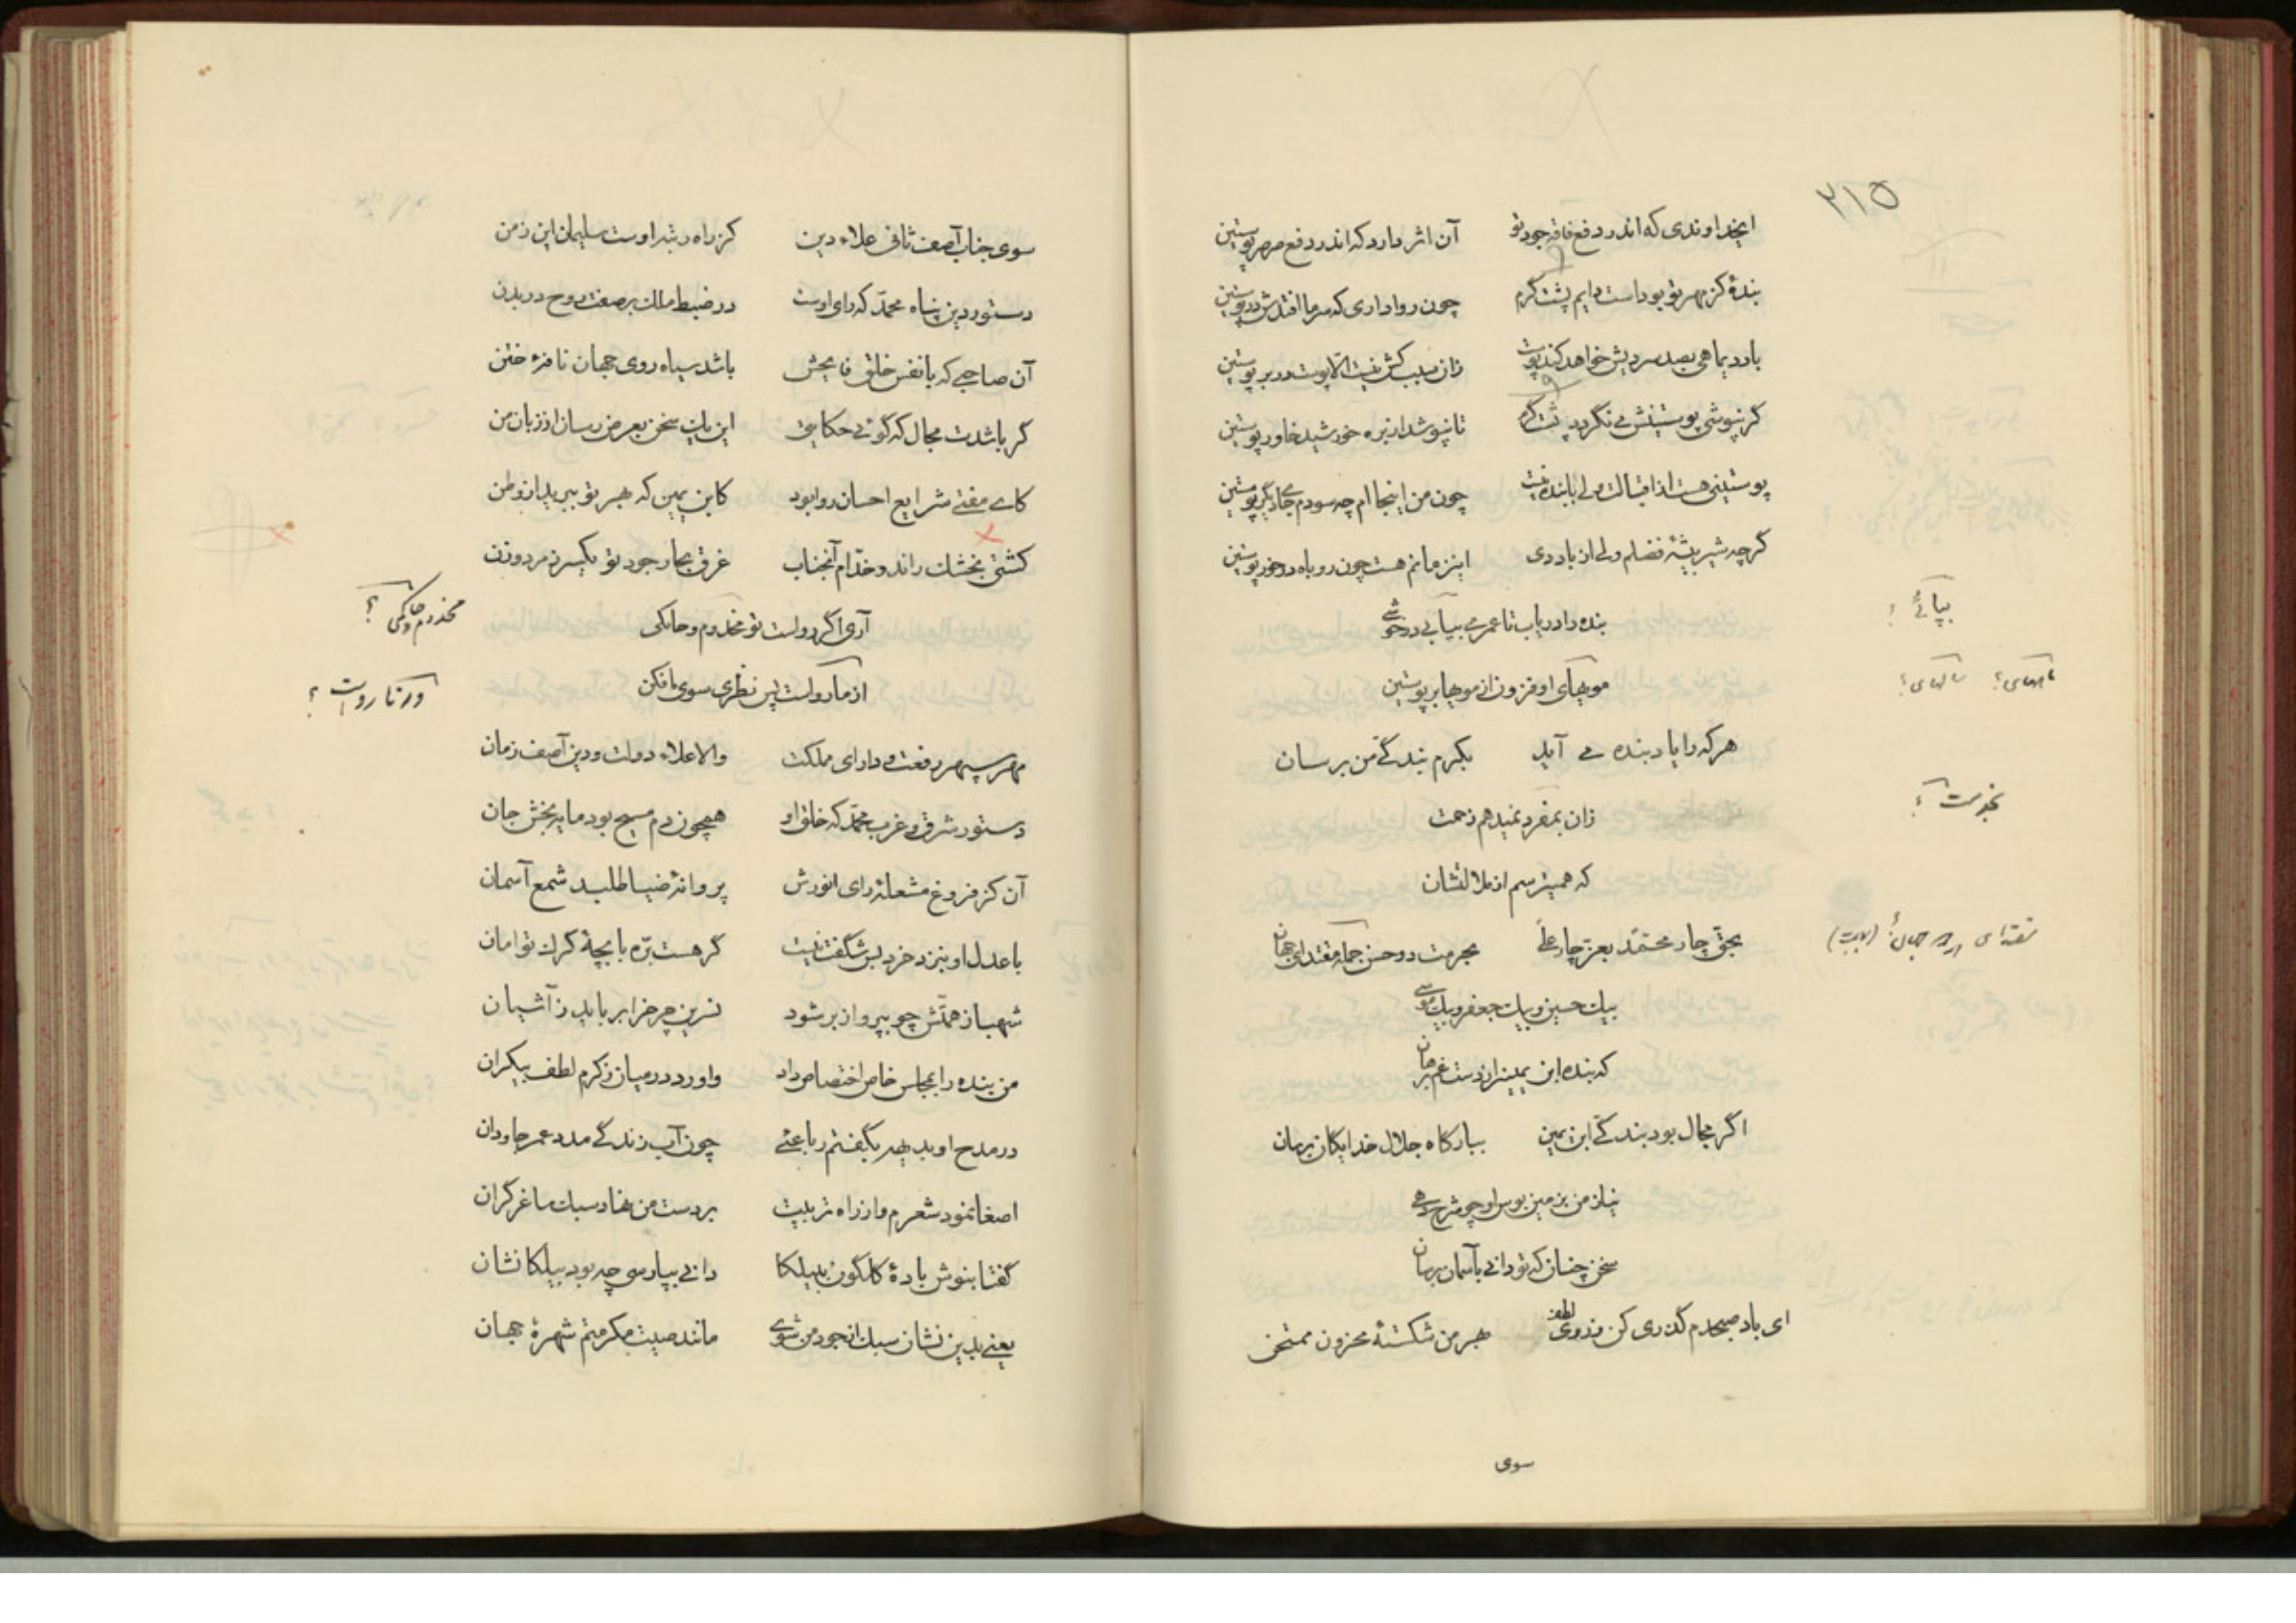 ۲۱۵
ایخداوندی که اندر دفع فاقه جود تو آن اثر دارد که اندر دفع صرصر پوستین
بندهٔ کز مهر تو بوداست دایم پشت گرم چون رواداری که سرما افتدش در پوستین
باد دیماهی بصد سردیش خواهد کند پوست زان سبب کش نیست الّا پوست در بر پوستین
گر نپوشی پوستینش می نگردد پشت گرم تا نپوشد از بره خورشید خاور پوستین
پوستینی هست از اقبالت ولی با بنده نیست چون من اینجاام چه سودم می جای دیگر پوستین
گرچه شیر بیشهٔ فضلم ولی از باد دی اینزمانم هست چون روباه در خور پوستین
بنده را دریاب تا عمری بیابی درخوشی
بپائی ؟
موبهای او فزون از مویها بر پوستین
سالهای ؟
هرکه را یاد بنده می آید بکرم بندگی من برسان
زان بمفرد نمیدهم زحمت
که همیترسم از ملالتشان
بحق چار محمّد بعزّ چار علی بحرمت دو حسن جمله مقتدای جهان
بیک حسین و بیک جعفر و بیک موسی
که بنده ابن یمین را ز دست غم برهان
اگر مجال بود بندگی ابن یمین ببارگاه جلال خدایگان برسان
نیاز من بزمین بوس او چو شرح دهی
سخن چنان که تو دانی بآسمان برسان
ای باد صبحدم گذری کن ز روی لطف بهر من شکستهٔ محزون ممتحن
سوی
سوی جناب آصف ثانی علاء دین کز راه رتبه اوست سلیمان این زمن
دستور دین پناه محمّد که رای اوست در ضبط ملک بر صفت روح در بدن
آن صاحبی که با نفس خلق فایحش باشد سیاه روی جهان نافهٔ ختن
گر باشدت مجال که گوئی حکایتی این یک سخن بعرض رسان از زبان من
کای مفتی شرایع احسان روا بود کابن یمین که بهر تو ببرید از وطن
کشتی بخشک راند و خدّام آنجناب غرق بحار جود تو یکسر ز مرد و زن
آری اگر رواست تو مخدوم و حاکمی
مخدوم و حاکمی ؟
ور نارواست پس نظری سوی ما فکن
ور نارواست ؟
مهر سپهر رفعت و دارای مملکت والا علاء دولت و دین آصف زمان
دستور شرق و غرب محمّد که خلق او همچون دم مسیح بود مایه بخش جان
آن کز فروغ مشعلهٔ رای انورش پروانهٔ ضیا طلبد شمع آسمان
با عدل او بنزد خرد بس شگفت نیست گر هست برّه با بچهٔ گرگ توامان
شهباز همتّش چو بپرواز بر شود نسرین چرخ را برباید ز آشیان
من بنده را بمجلس خاص اختصاص داد واورد در میان ز کرم لطف بیکران
در مدح او بدیهه بگفتم رباعئی چون آب زندگی مدد عمر جاودان
اصغا نمود شعرم و از راه تربیت بر دست من نهاد سبک ساغر گران
گفتا بنوش بادهٔ گلگون بیبلکا دانی بپارسی چه بود بیلکا نشان
یعنی بدین نشان سبک از جود من شوی مانند صیت مکرمتم شهرهٔ جهان